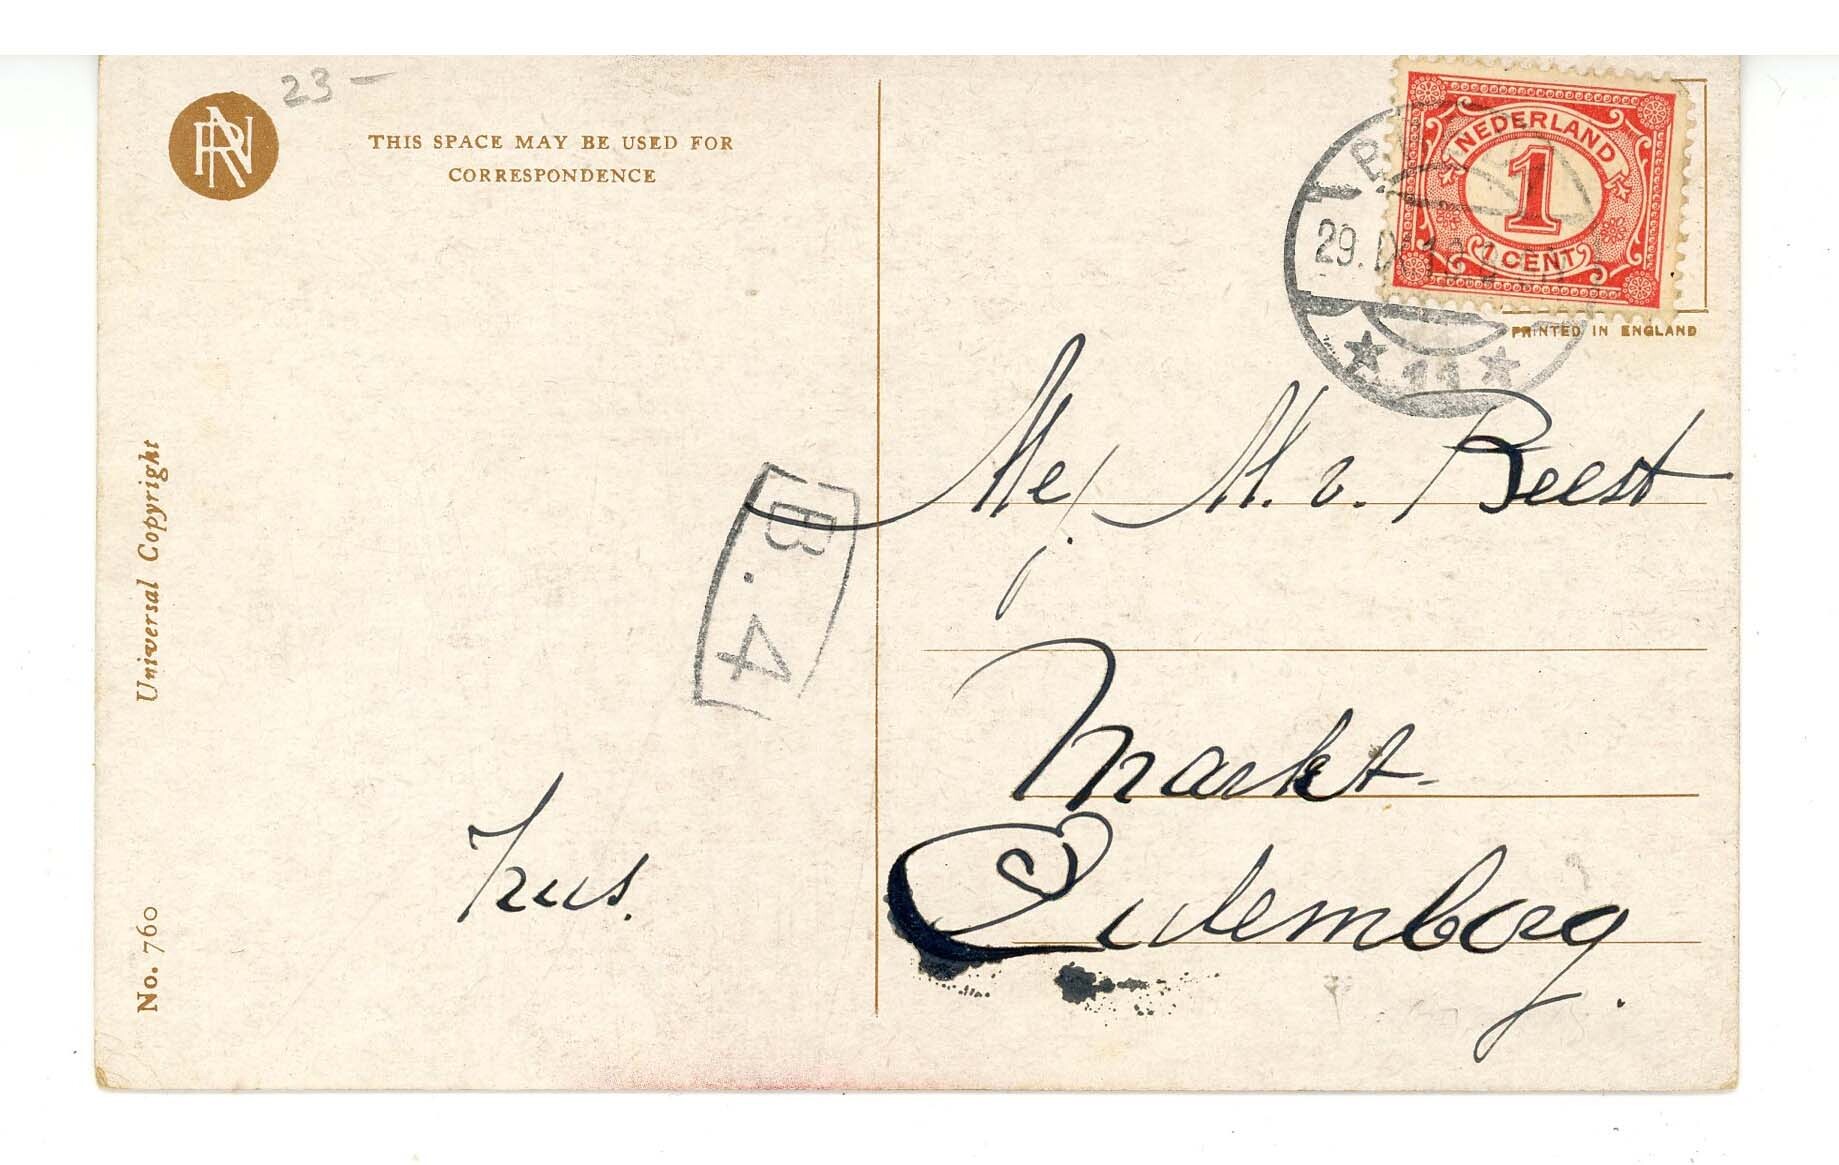 23 –
THIS SPACE MAY BE USED FOR
CORRESPONDENCE
NEDERLAND
1
1 CENT
29. IX
11
PRINTED IN ENGLAND
Mej. M. v. Beest
B.4
Markt
Culemborg.
Trus.
Universal Copyright
No. 760